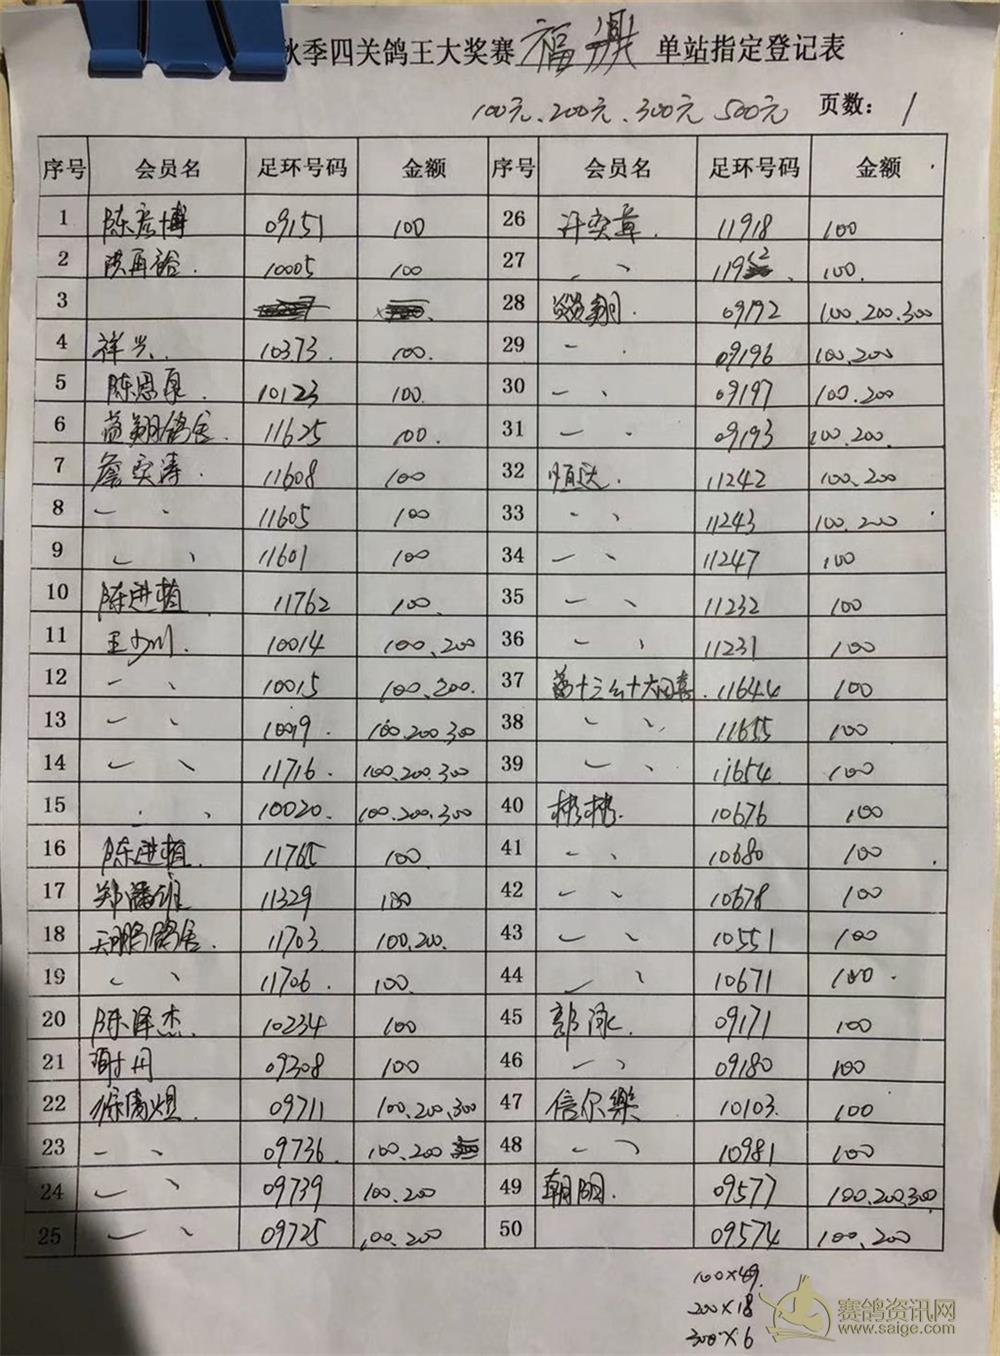 秋季四关鸽王大奖赛 福鼎 单站指定登记表
100元、200元、300元 500元 页数: 1
序号 会员名 足环号码 金额 序号 会员名 足环号码 金额
1 陈彦博 09151 100 26 许奕章. 11918 100
2 洪再裕. 10005 100 27 、 、 100.
3 28 翔. 09192 100.200.300
4 祥兴. 10373. 100. 29 - 、 09196 100.200
5 陈恩泉. 10123 100. 30 - 、 09197 100.200
6 翔鸽舍. 11625 100. 31 - 、 09193 100.200.
7 詹奕涛. 11608 100 32 恒达. 11242 100.200
8 - 、 11605 100 33 、 、 11243 100.200
9 、 、 11601 100 34 - 、 11247 100
10 陈进植 11762 100. 35 - 、 11232 100
11 王少川. 10014 100、200 36 - 、 11231 100
12 - 、 10015 100、200. 37 11644 100
13 - 、 10019. 100.200.300 38 、 、 11655 100
14 、 、 11716. 100.200.300 39 、 、 11654 100
15 . 、 10020. 100.200.300 40 彬彬. 10676 100
16 陈进植. 11765 100. 41 - 、 10680 100
17 郑雄 11329 100 42 - 、 10678 100
18 天鹏鸽舍. 11703. 100.200. 43 、 、 10551 100
19 、 、 11706. 100. 44 、 、 10671 100.
20 陈泽杰. 10234 100 45 09171 100
21 谢丹 09308 100 46 - 、 09180 100
22 09711 100.200.300 47 信尔乐 10103. 100
23 - 、 09736. 100.200 48 、 、 10981 100
24 、 、 09739 100.200 49 朝明. 09577 100.200.300
25 、 、 09725 100.200 50 09574 100.200
100×49.
200×18
300×6
赛鸽资讯网
www.saige.com